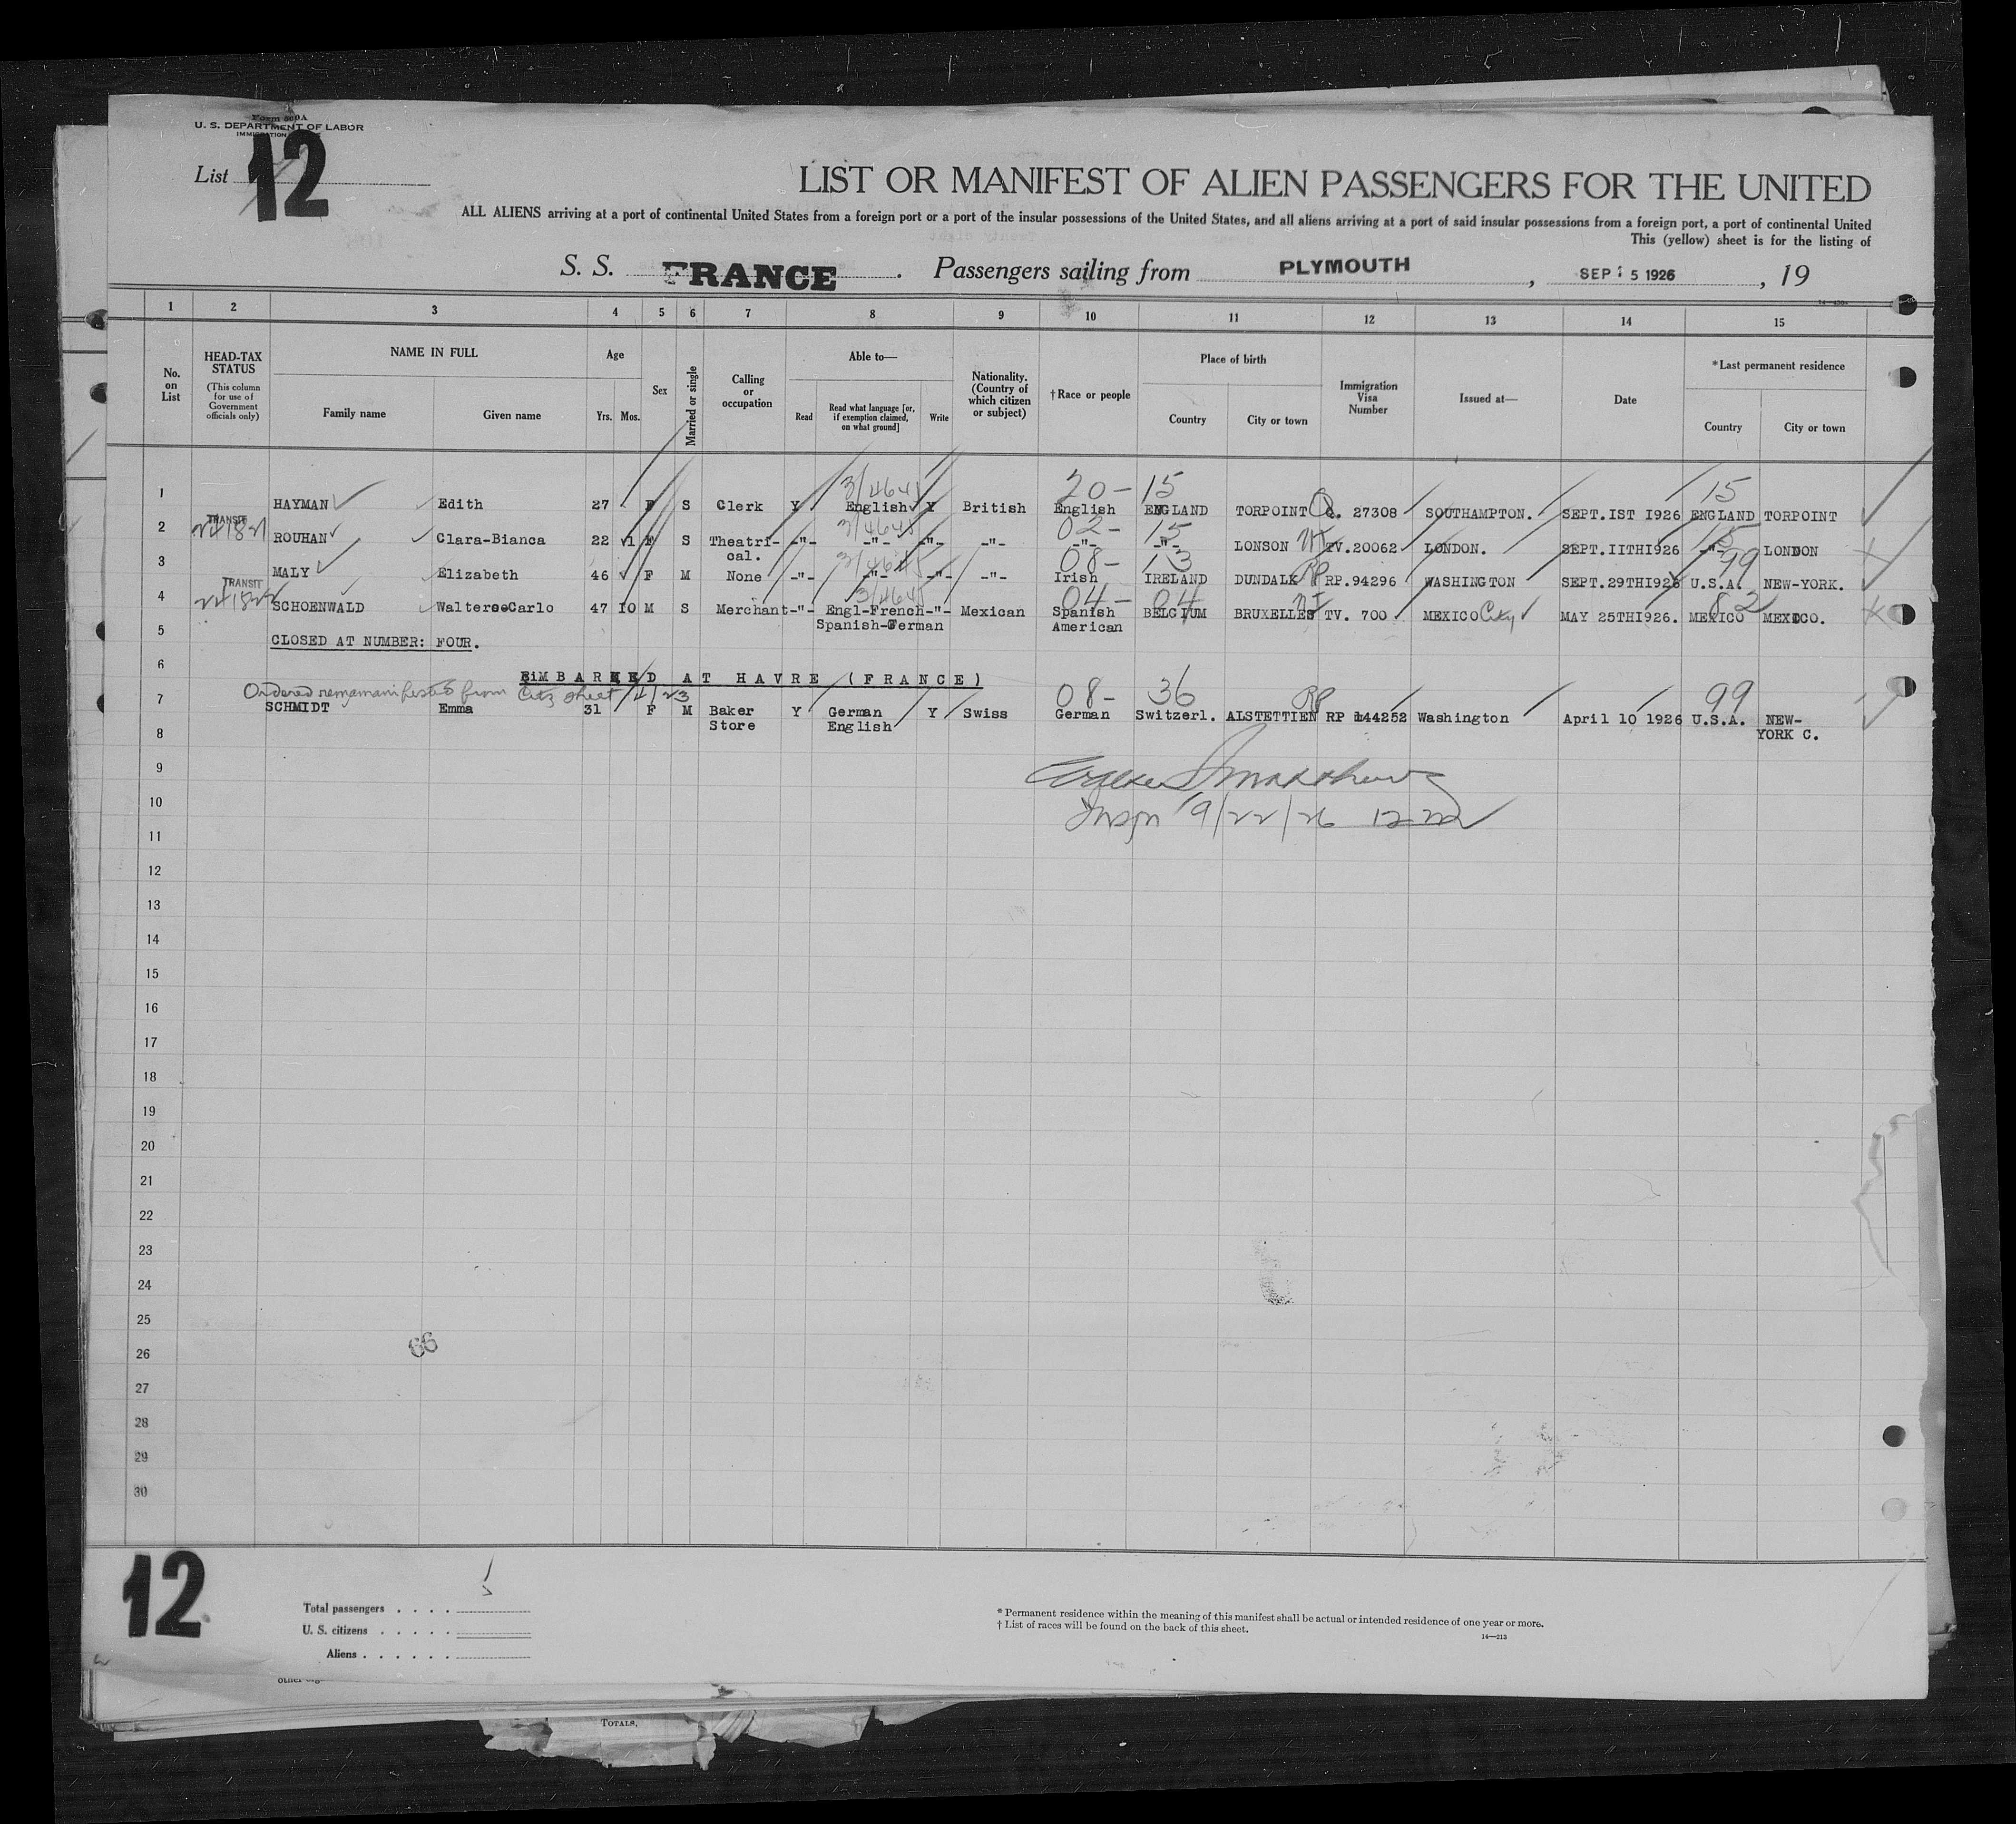 Form 500A
U. S. DEPARTMENT OF LABOR
List 12
LIST OR MANIFEST OF ALIEN PASSENGERS FOR THE UNITED
ALL ALIENS arriving at a port of continental United States from a foreign port or a port of the insular possessions of the United States, and all aliens arriving at a port of said insular possessions from a foreign port, a port of continental United
This (yellow) sheet is for the listing of
S. S. FRANCE. Passengers sailing from PLYMOUTH, SEP 15 1926, 19
1 2 3 4 5 6 7 8 9 10 11 12 13 14 15
No. on List
HEAD-TAX STATUS (This column for use of Government officials only)
NAME IN FULL Family name Given name
Age Yrs. Mos.
Sex
Married or single
Calling or occupation
Able to— Read Read what language [or, if exemption claimed, on what ground] Write
Nationality. (Country of which citizen or subject)
†Race or people
Place of birth Country City or town
Immigration Visa Number
Issued at—
Date
*Last permanent residence Country City or town
3/4641 20- 15 15
1 HAYMAN Edith 27 F S Clerk Y English Y British English ENGLAND TORPOINT Q. 27308 SOUTHAMPTON. SEPT.IST I926 ENGLAND TORPOINT
TRANSIT 02- 15 15
2 ROUHAN Clara-Bianca 22 1 F S Theatri- -"- -"- -"- -"- -"- -"- LONSON TV.20062 LONDON. SEPT.IITHI926 -"- LONDON
cal.
08- 13 99
3 MALY Elizabeth 46 F M None -"- -"- -"- -"- Irish IRELAND DUNDALK RP RP.94296 WASHINGTON SEPT.29THI926 U.S.A. NEW-YORK.
TRANSIT 04- 04 82
4 SCHOENWALD Walter Carlo 47 I0 M S Merchant -"- Engl-French -"- Mexican Spanish BELGIUM BRUXELLES TV. 700 MEXICO City MAY 25THI926. MEXICO MEXICO.
Spanish-German American
5 CLOSED AT NUMBER: FOUR.
6 EMBARKED AT HAVRE (FRANCE)
Ordered remanifested from Citz sheet 08- 36 RP 99
7 SCHMIDT Emma 31 F M Baker Y German Y Swiss German Switzerl. ALSTETTIEN RP 144252 Washington April 10 1926 U.S.A. NEW-
Store English YORK C.
8
9
10
Inspr 9/22/26
11
12
13
14
15
16
17
18
19
20
21
22
23
24
25
26 66
27
28
29
30
12
Total passengers
U. S. citizens
Aliens
* Permanent residence within the meaning of this manifest shall be actual or intended residence of one year or more.
† List of races will be found on the back of this sheet.
14—213
TOTALS,